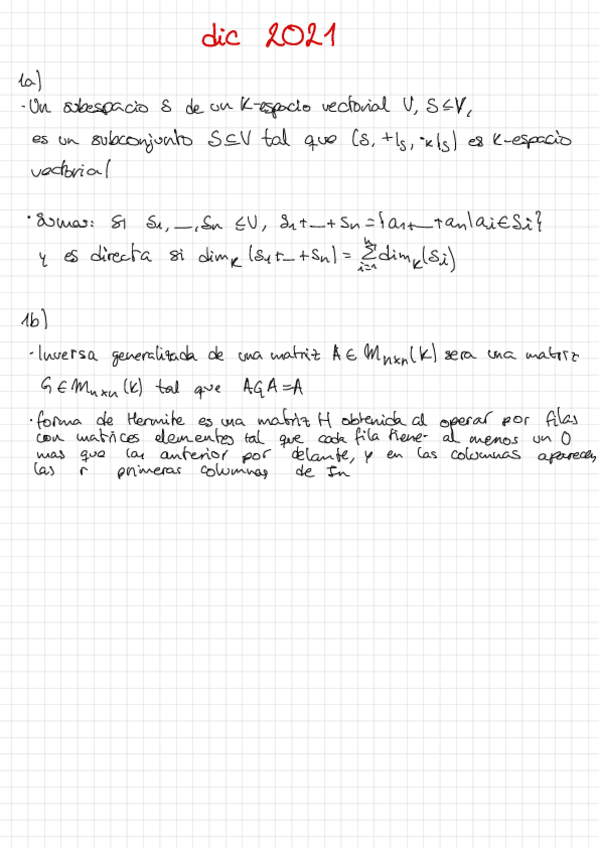 dic 2021
1a)
· Un subespacio S de un K-espacio vectorial V, S≤V,
es un subconjunto S⊆V tal que (S, +|s, ·k|s) es K-espacio
vectorial
· Sumas: Si S1, _, Sn ≤V, S1+_+Sn={a1+_+an|ai∈Si}
y es directa si dimK (S1+_+Sn)= ∑ⁿᵢ₌₁ dimK(Si)
1b)
· Inversa generalizada de una matriz A∈Mnxn(K) sera una matriz
G∈Mnxn(K) tal que AGA=A
· forma de Hermite es una matriz H obtenida al operar por filas
con matrices elementes tal que cada fila tiene al menos un 0
mas que las anterior por delante, y en las columnas aparecen
las r primeras columnas de In